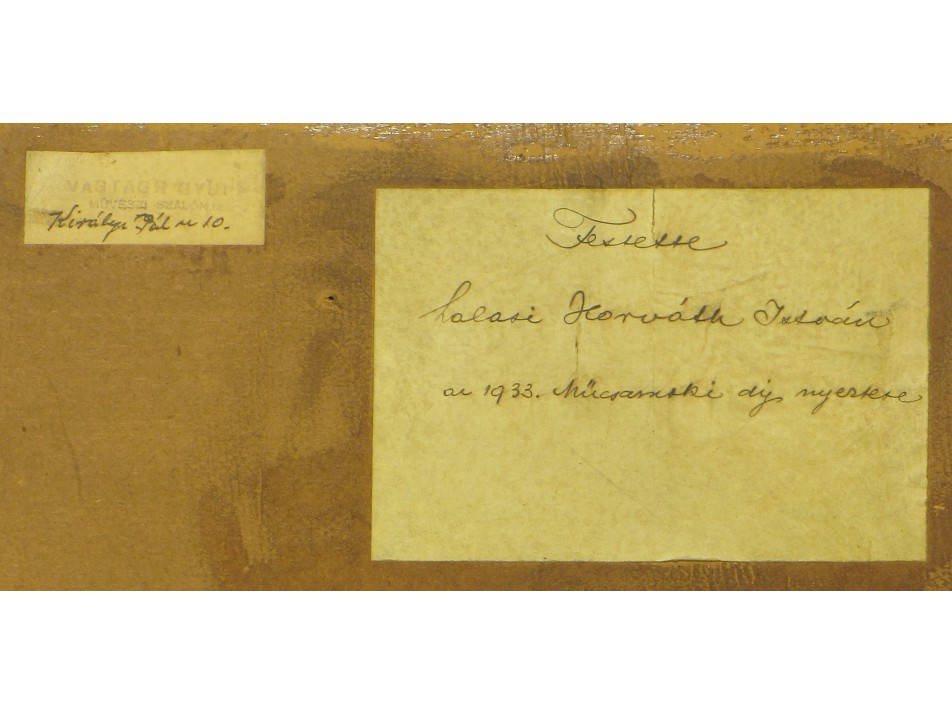 MŰVÉSZI SZALON
Király Pál u 10.
Festette
halasi Horváth István
az 1933. Műcsarnoki díj nyertese